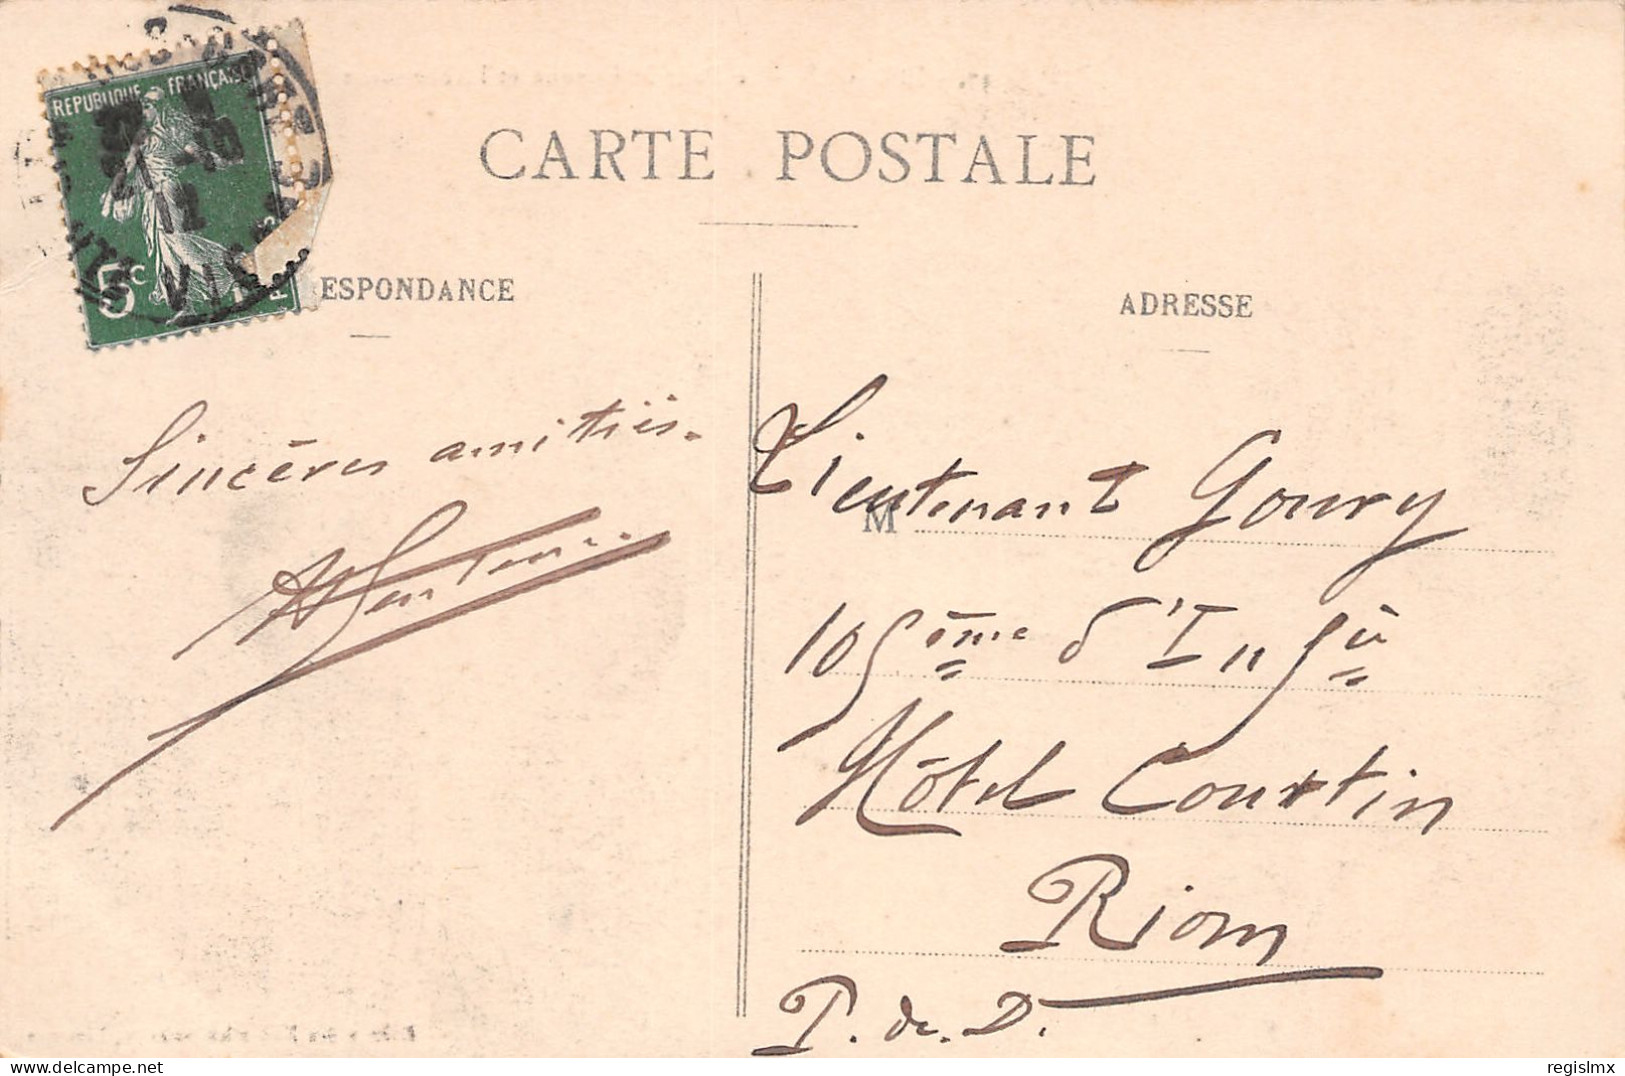 REPUBLIQUE FRANÇAISE
5c
CARTE POSTALE
ESPONDANCE
ADRESSE
Sincères amitiés.
Lieutenant Goury
M
105ème d'Infie
Hôtel Courtin
Riom
P. de D.
regislmx